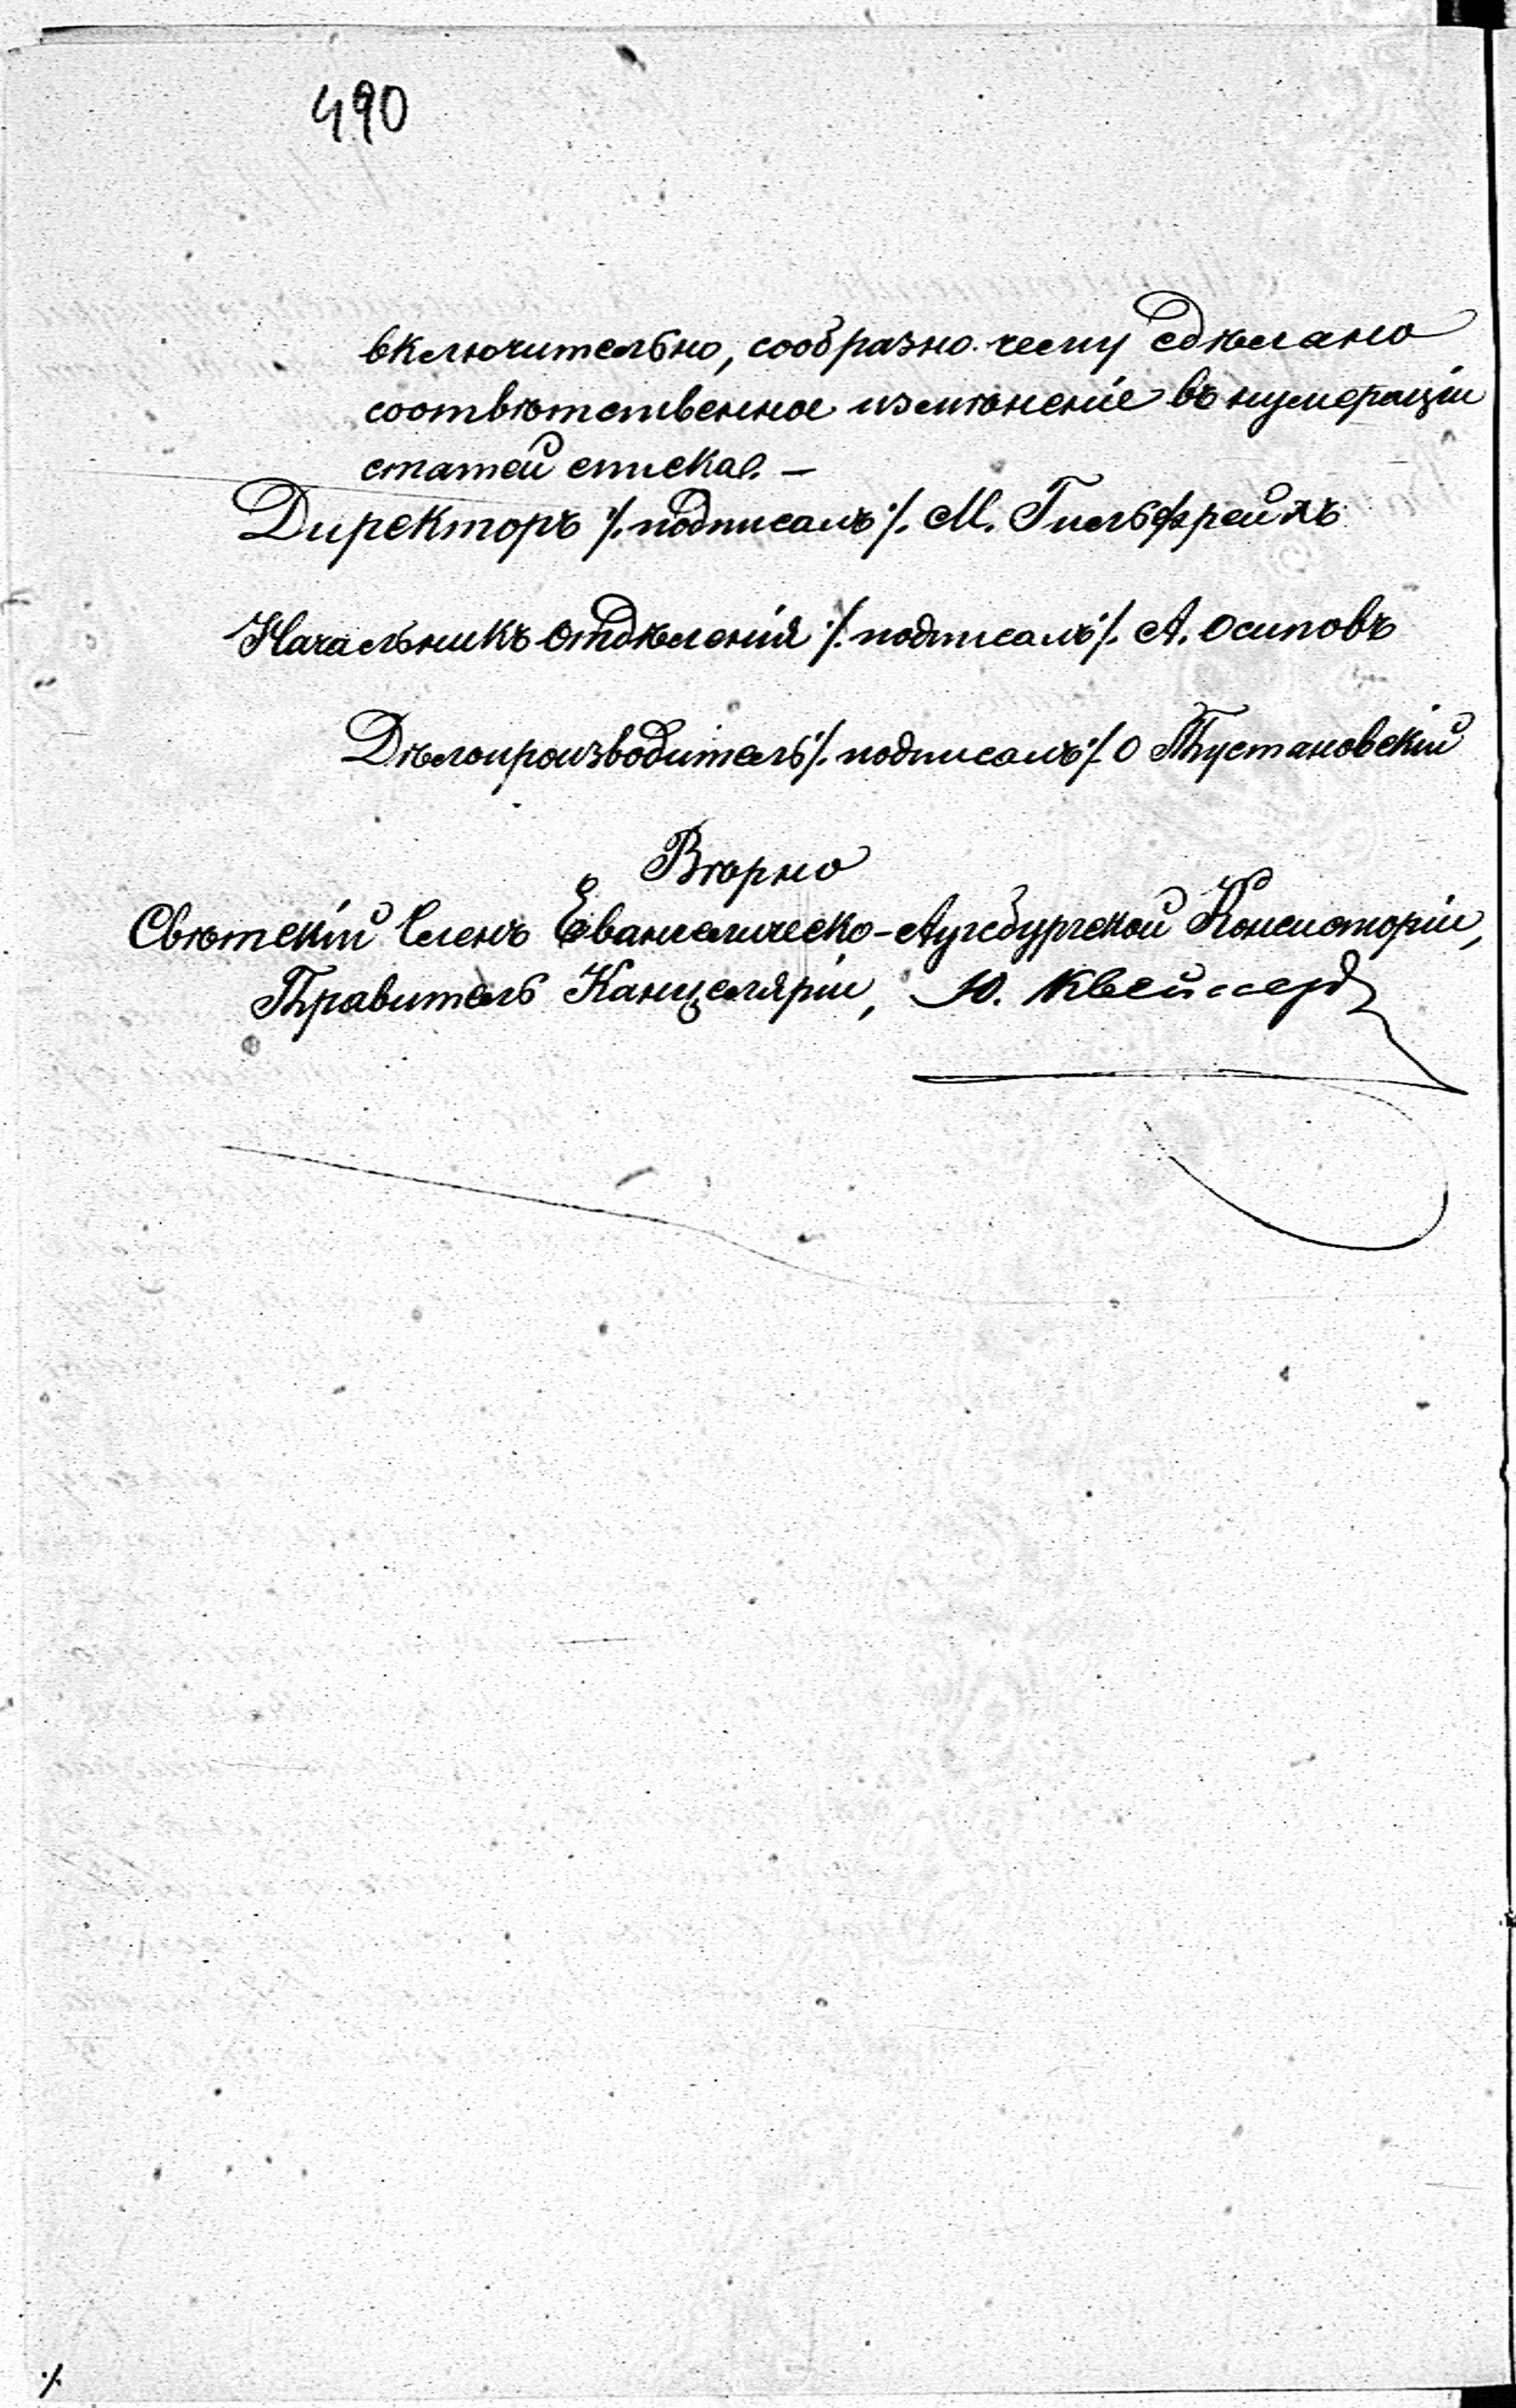 490
включительно, сообразно чему сдѣлано
соотвѣтственное измѣненіе въ нумераціи
статей списка. —
Директоръ /. подписалъ ./. М. Гильфрейхъ
Начальникъ Отдѣленія ./. подписалъ ./. А. Осиповъ
Дѣлопроизводитель ./. подписалъ ./. О Пустановскій
Вѣрно
Свѣтскій Членъ Евангелическо-Аугсбургской Консисторіи,
Правитель Канцеляріи, Ю.
./.